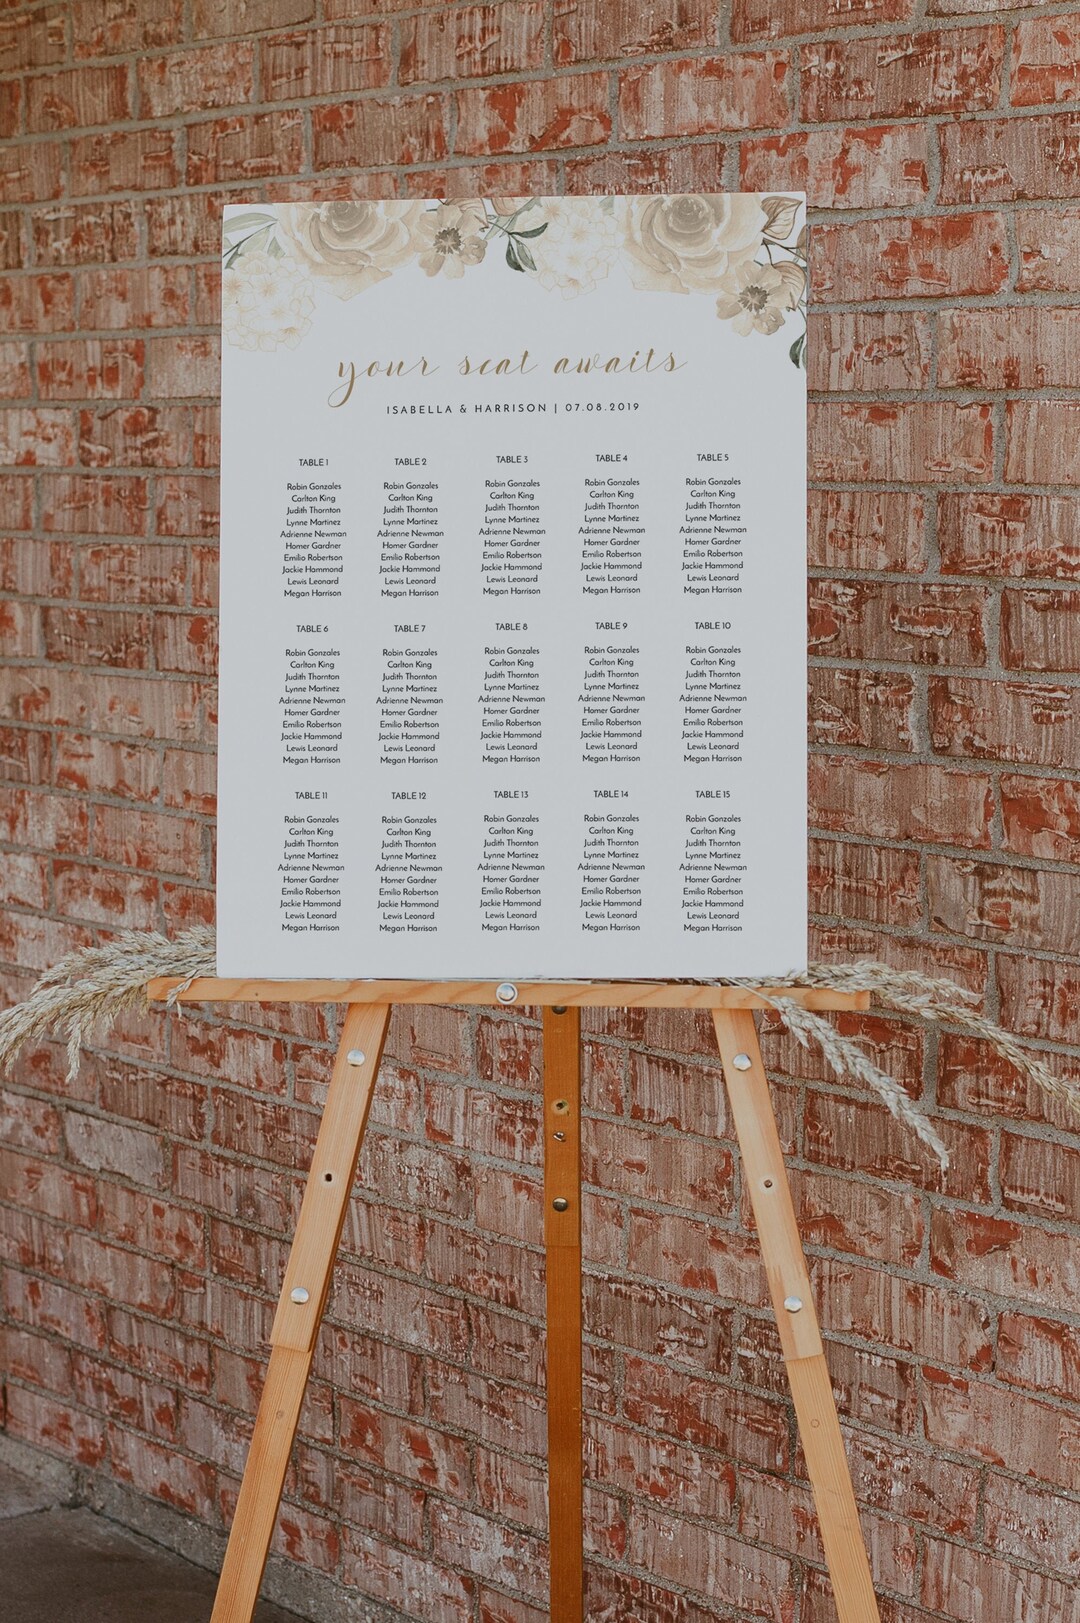 your seat awaits
ISABELLA & HARRISON | 07.08.2019
TABLE 1
Robin Gonzales
Carlton King
Judith Thornton
Lynne Martinez
Adrienne Newman
Homer Gardner
Emilio Robertson
Jackie Hammond
Lewis Leonard
Megan Harrison
TABLE 2
Robin Gonzales
Carlton King
Judith Thornton
Lynne Martinez
Adrienne Newman
Homer Gardner
Emilio Robertson
Jackie Hammond
Lewis Leonard
Megan Harrison
TABLE 3
Robin Gonzales
Carlton King
Judith Thornton
Lynne Martinez
Adrienne Newman
Homer Gardner
Emilio Robertson
Jackie Hammond
Lewis Leonard
Megan Harrison
TABLE 4
Robin Gonzales
Carlton King
Judith Thornton
Lynne Martinez
Adrienne Newman
Homer Gardner
Emilio Robertson
Jackie Hammond
Lewis Leonard
Megan Harrison
TABLE 5
Robin Gonzales
Carlton King
Judith Thornton
Lynne Martinez
Adrienne Newman
Homer Gardner
Emilio Robertson
Jackie Hammond
Lewis Leonard
Megan Harrison
TABLE 6
Robin Gonzales
Carlton King
Judith Thornton
Lynne Martinez
Adrienne Newman
Homer Gardner
Emilio Robertson
Jackie Hammond
Lewis Leonard
Megan Harrison
TABLE 7
Robin Gonzales
Carlton King
Judith Thornton
Lynne Martinez
Adrienne Newman
Homer Gardner
Emilio Robertson
Jackie Hammond
Lewis Leonard
Megan Harrison
TABLE 8
Robin Gonzales
Carlton King
Judith Thornton
Lynne Martinez
Adrienne Newman
Homer Gardner
Emilio Robertson
Jackie Hammond
Lewis Leonard
Megan Harrison
TABLE 9
Robin Gonzales
Carlton King
Judith Thornton
Lynne Martinez
Adrienne Newman
Homer Gardner
Emilio Robertson
Jackie Hammond
Lewis Leonard
Megan Harrison
TABLE 10
Robin Gonzales
Carlton King
Judith Thornton
Lynne Martinez
Adrienne Newman
Homer Gardner
Emilio Robertson
Jackie Hammond
Lewis Leonard
Megan Harrison
TABLE 11
Robin Gonzales
Carlton King
Judith Thornton
Lynne Martinez
Adrienne Newman
Homer Gardner
Emilio Robertson
Jackie Hammond
Lewis Leonard
Megan Harrison
TABLE 12
Robin Gonzales
Carlton King
Judith Thornton
Lynne Martinez
Adrienne Newman
Homer Gardner
Emilio Robertson
Jackie Hammond
Lewis Leonard
Megan Harrison
TABLE 13
Robin Gonzales
Carlton King
Judith Thornton
Lynne Martinez
Adrienne Newman
Homer Gardner
Emilio Robertson
Jackie Hammond
Lewis Leonard
Megan Harrison
TABLE 14
Robin Gonzales
Carlton King
Judith Thornton
Lynne Martinez
Adrienne Newman
Homer Gardner
Emilio Robertson
Jackie Hammond
Lewis Leonard
Megan Harrison
TABLE 15
Robin Gonzales
Carlton King
Judith Thornton
Lynne Martinez
Adrienne Newman
Homer Gardner
Emilio Robertson
Jackie Hammond
Lewis Leonard
Megan Harrison